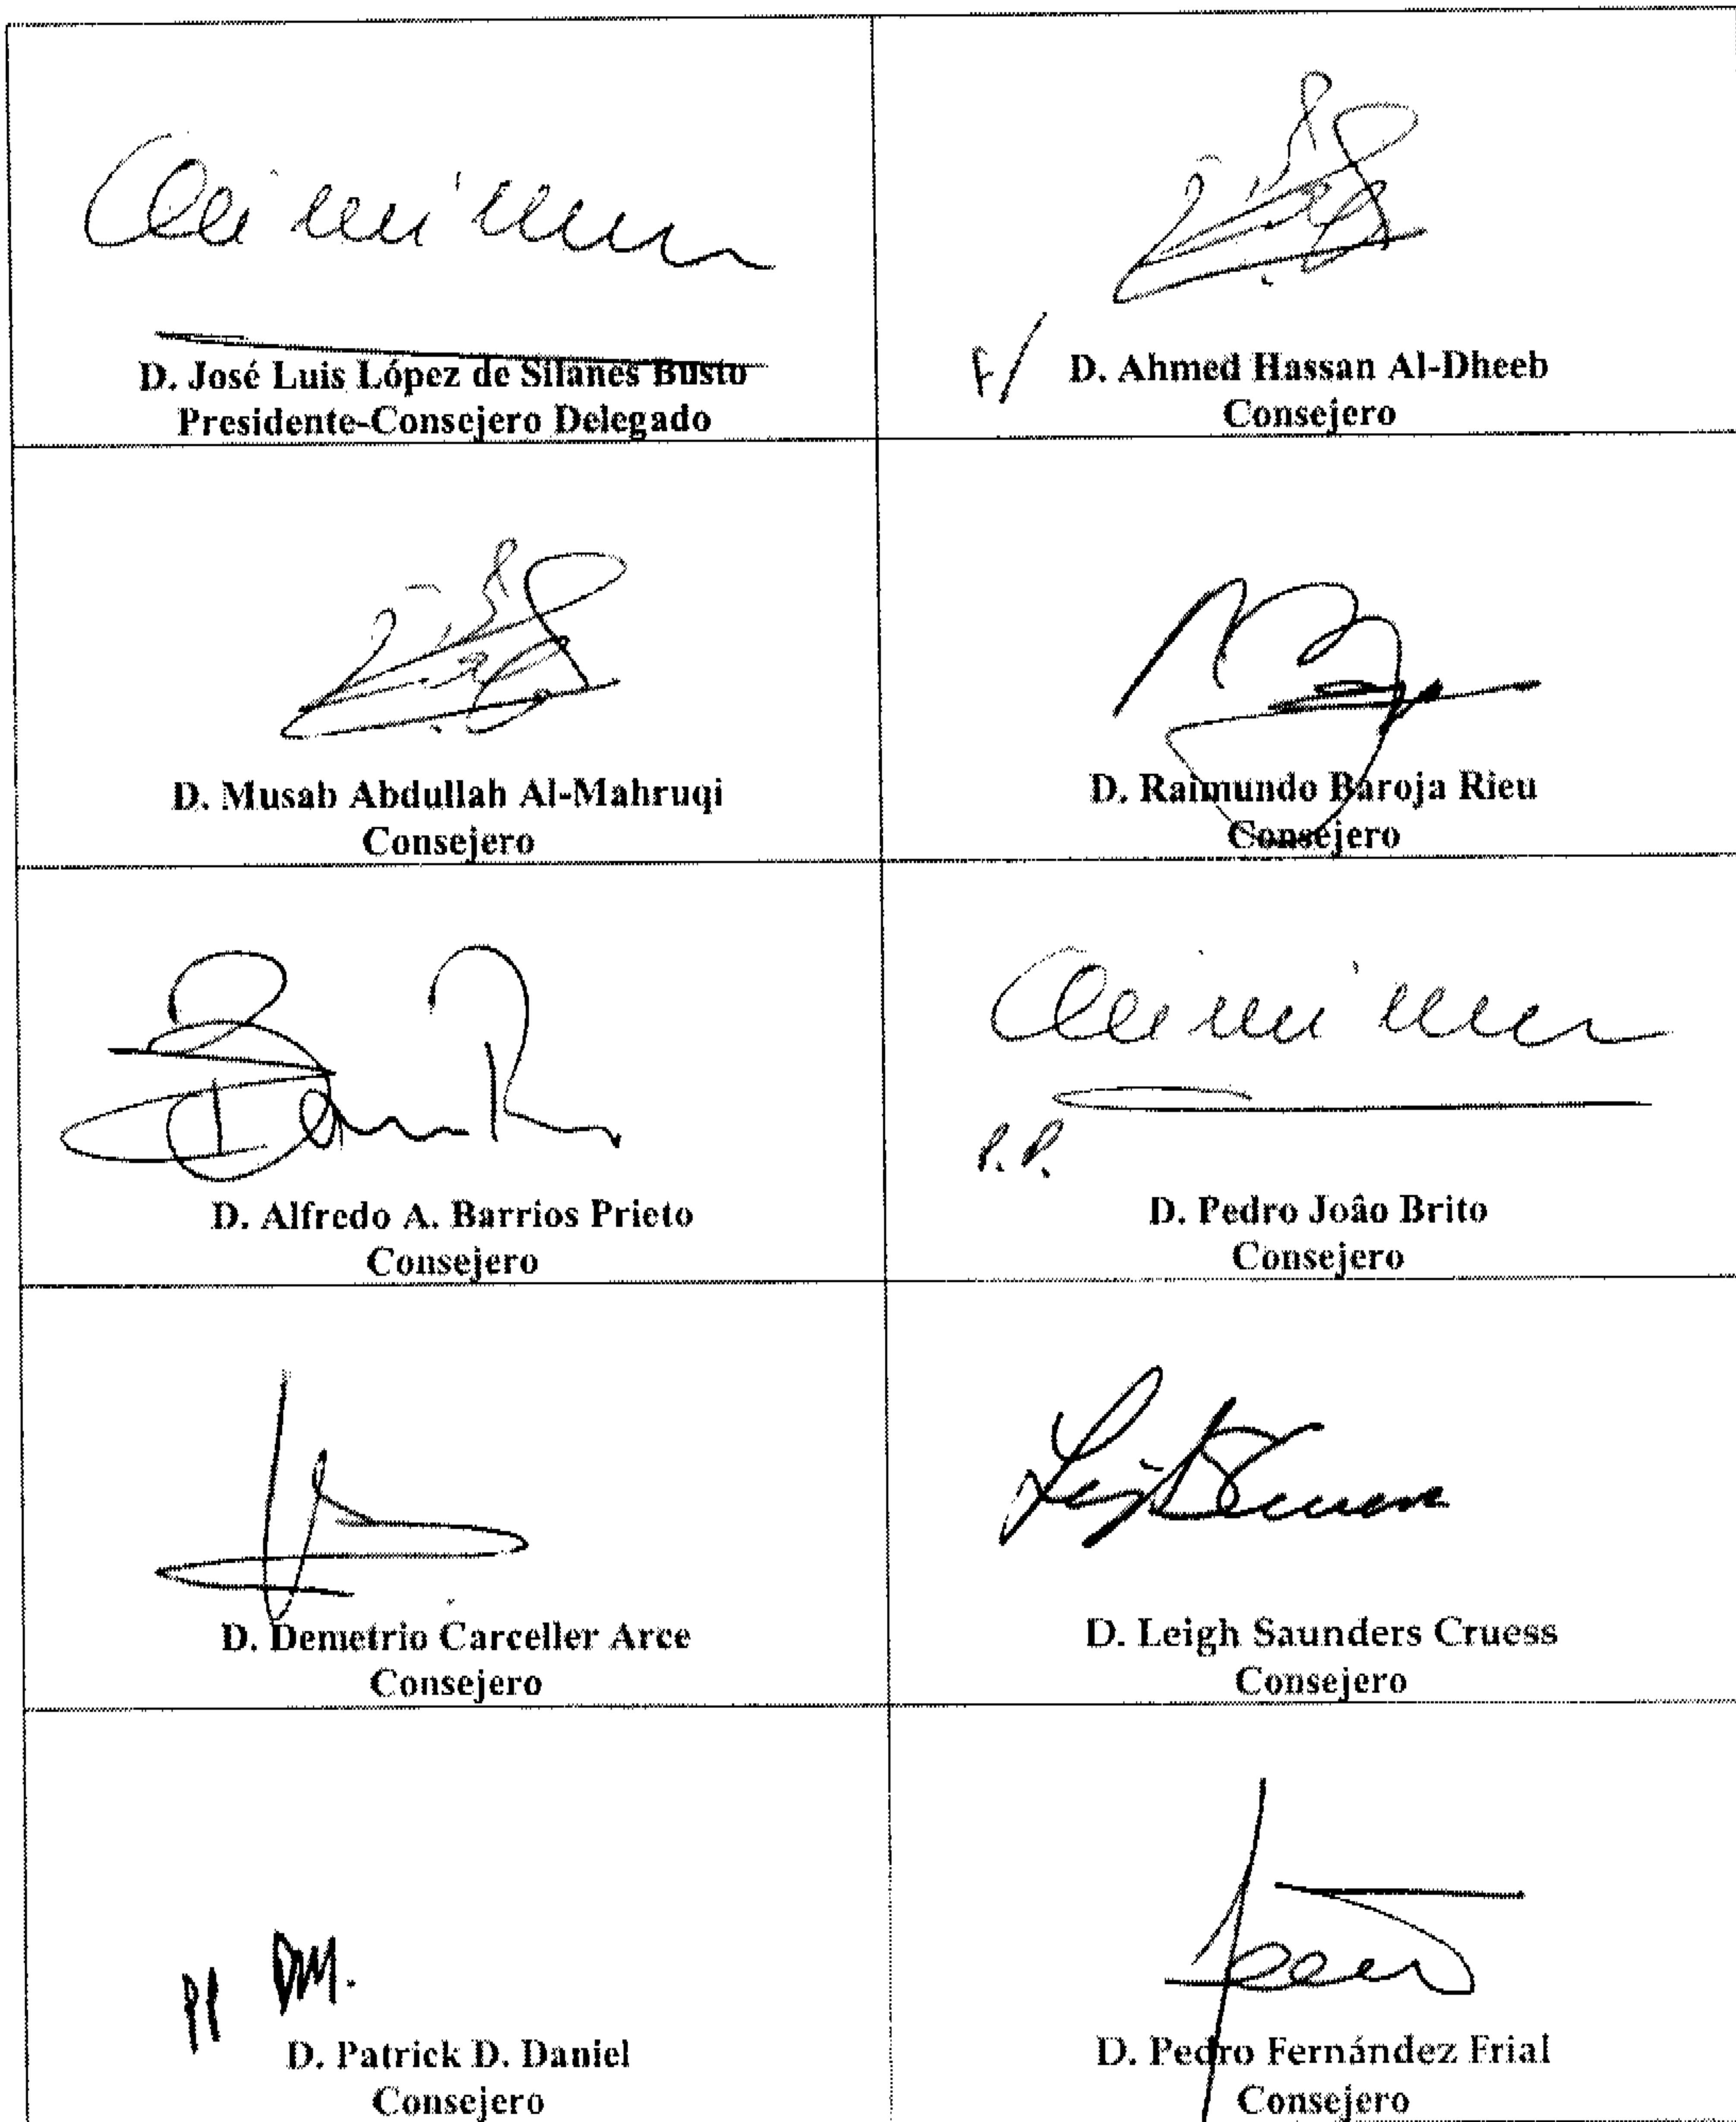 D. José Luis López de Silanes Busto
Presidente-Consejero Delegado
F/
D. Ahmed Hassan Al-Dheeb
Consejero
D. Musab Abdullah Al-Mahruqi
Consejero
D. Raimundo Baroja Rieu
Consejero
D. Alfredo A. Barrios Prieto
Consejero
P.P.
D. Pedro Joâo Brito
Consejero
D. Demetrio Carceller Arce
Consejero
D. Leigh Saunders Cruess
Consejero
PP
D. Patrick D. Daniel
Consejero
D. Pedro Fernández Frial
Consejero